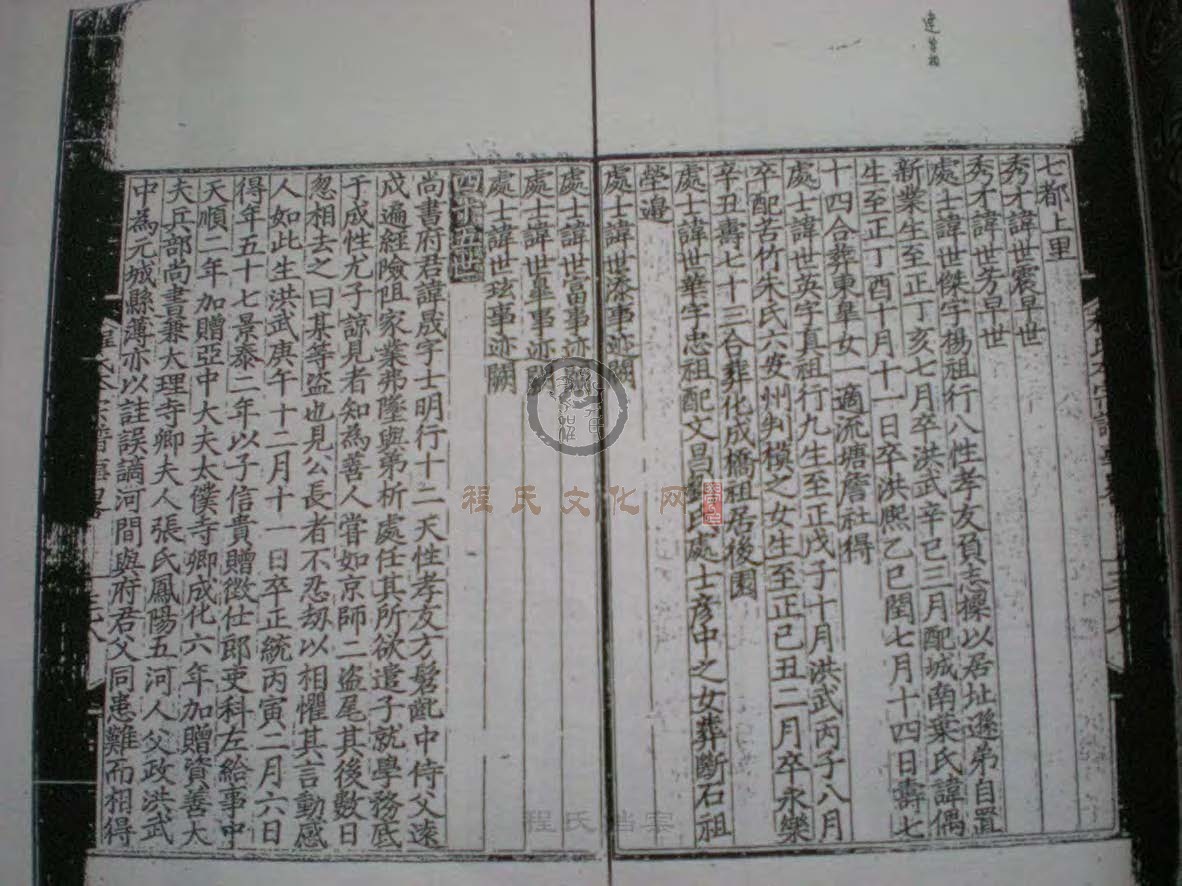 七都上里
秀才諱世震早世
秀才諱世芳早世
處士諱世傑字楊祖行八性孝友負志操以居址遜弟自置
新業生至正丁亥七月卒洪武辛巳三月配城南葉氏諱偶
生至正丁酉十月十一日卒洪熈乙巳閏七月十四日壽七
十四合葬東臯女一適流塘詹社得
處士諱世英字真祖行九生至正戊子十月洪武丙子八月
卒配苦竹朱氏六安州判模之女生至正己丑二月卒永樂
辛丑壽七十三合葬化成橋祖居後園
處士諱世華字忠祖配文昌 氏處士彦中之女葬斷石祖
塋邊
處士諱世 事迹闕
處士諱世富事迹
處士諱世臯事迹闕
處士諱世玹事迹闕
四十五世
尚書府君諱晟字士明行十二天性孝友方髫齔中侍父逺
戍遍經險阻家業弗墜與弟析處任其所欲遣子就學務底
于成性尤子諒見者知為善人嘗如京師二盗尾其後數日
忽相去之曰某等盗也見公長者不忍刼以相懼其言動感
人如此生洪武庚午十二月十一日卒正統丙寅二月六日
得年五十七景泰二年以子信貴贈徴仕郎吏科左給事中
天順二年加贈亞中大夫太僕寺卿成化六年加贈資善大
夫兵部尚書兼大理寺卿夫人張氏鳳陽五河人父政洪武
中為元城縣薄亦以詿誤謫河間與府君父同患難而相得
程氏文化网
程氏 宗